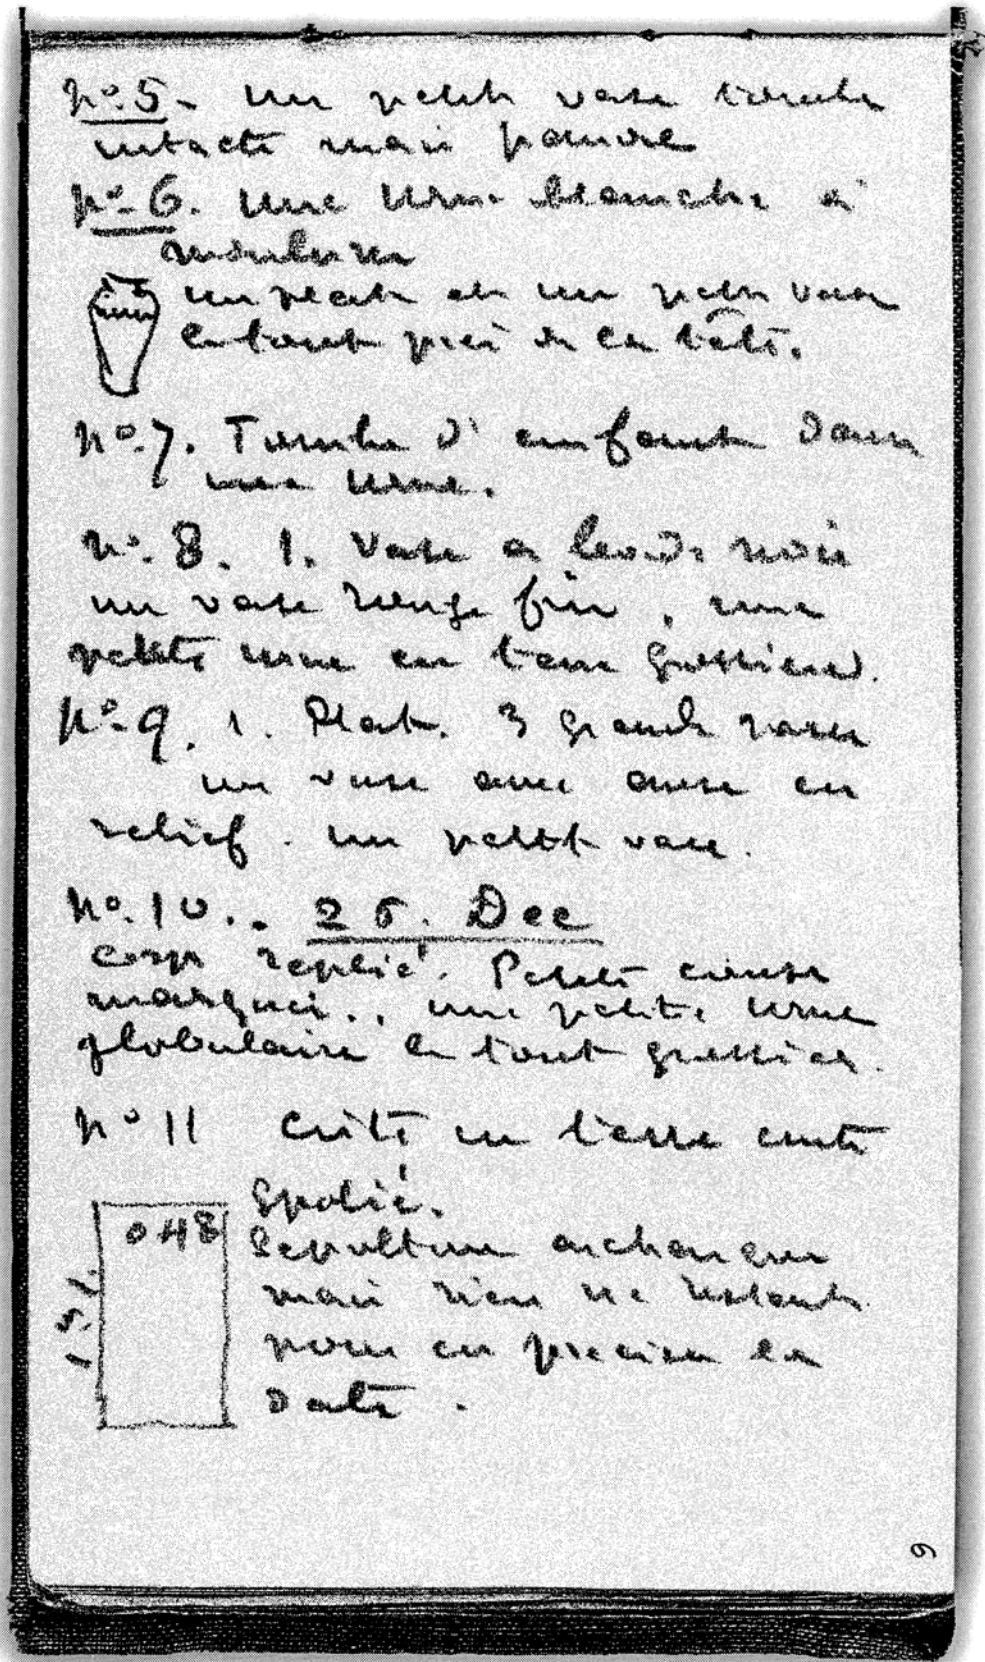 no. 5 - un petit vase
intacte mais pauvre
no. 6. une urne blanche à
moulures
un plat et un petit vase
le tout près de la tête.
no. 7. Tombe d'enfant dans
une urne.
no. 8. 1. Vase a bords noir
un vase rouge fin, une
petite urne en terre grossière.
no. 9. 1. Plat. 3 grands vases
un vase avec anse en
relief. un petit vase.
no. 10.. 26. Dec
corps replié. Petite
une petite urne
globulaire le tout grossier.
no 11 en terre cuite
Spolié.
048
Sépulture archaique
1.51
mais rien ne restant
pour en preciser la
date.
9